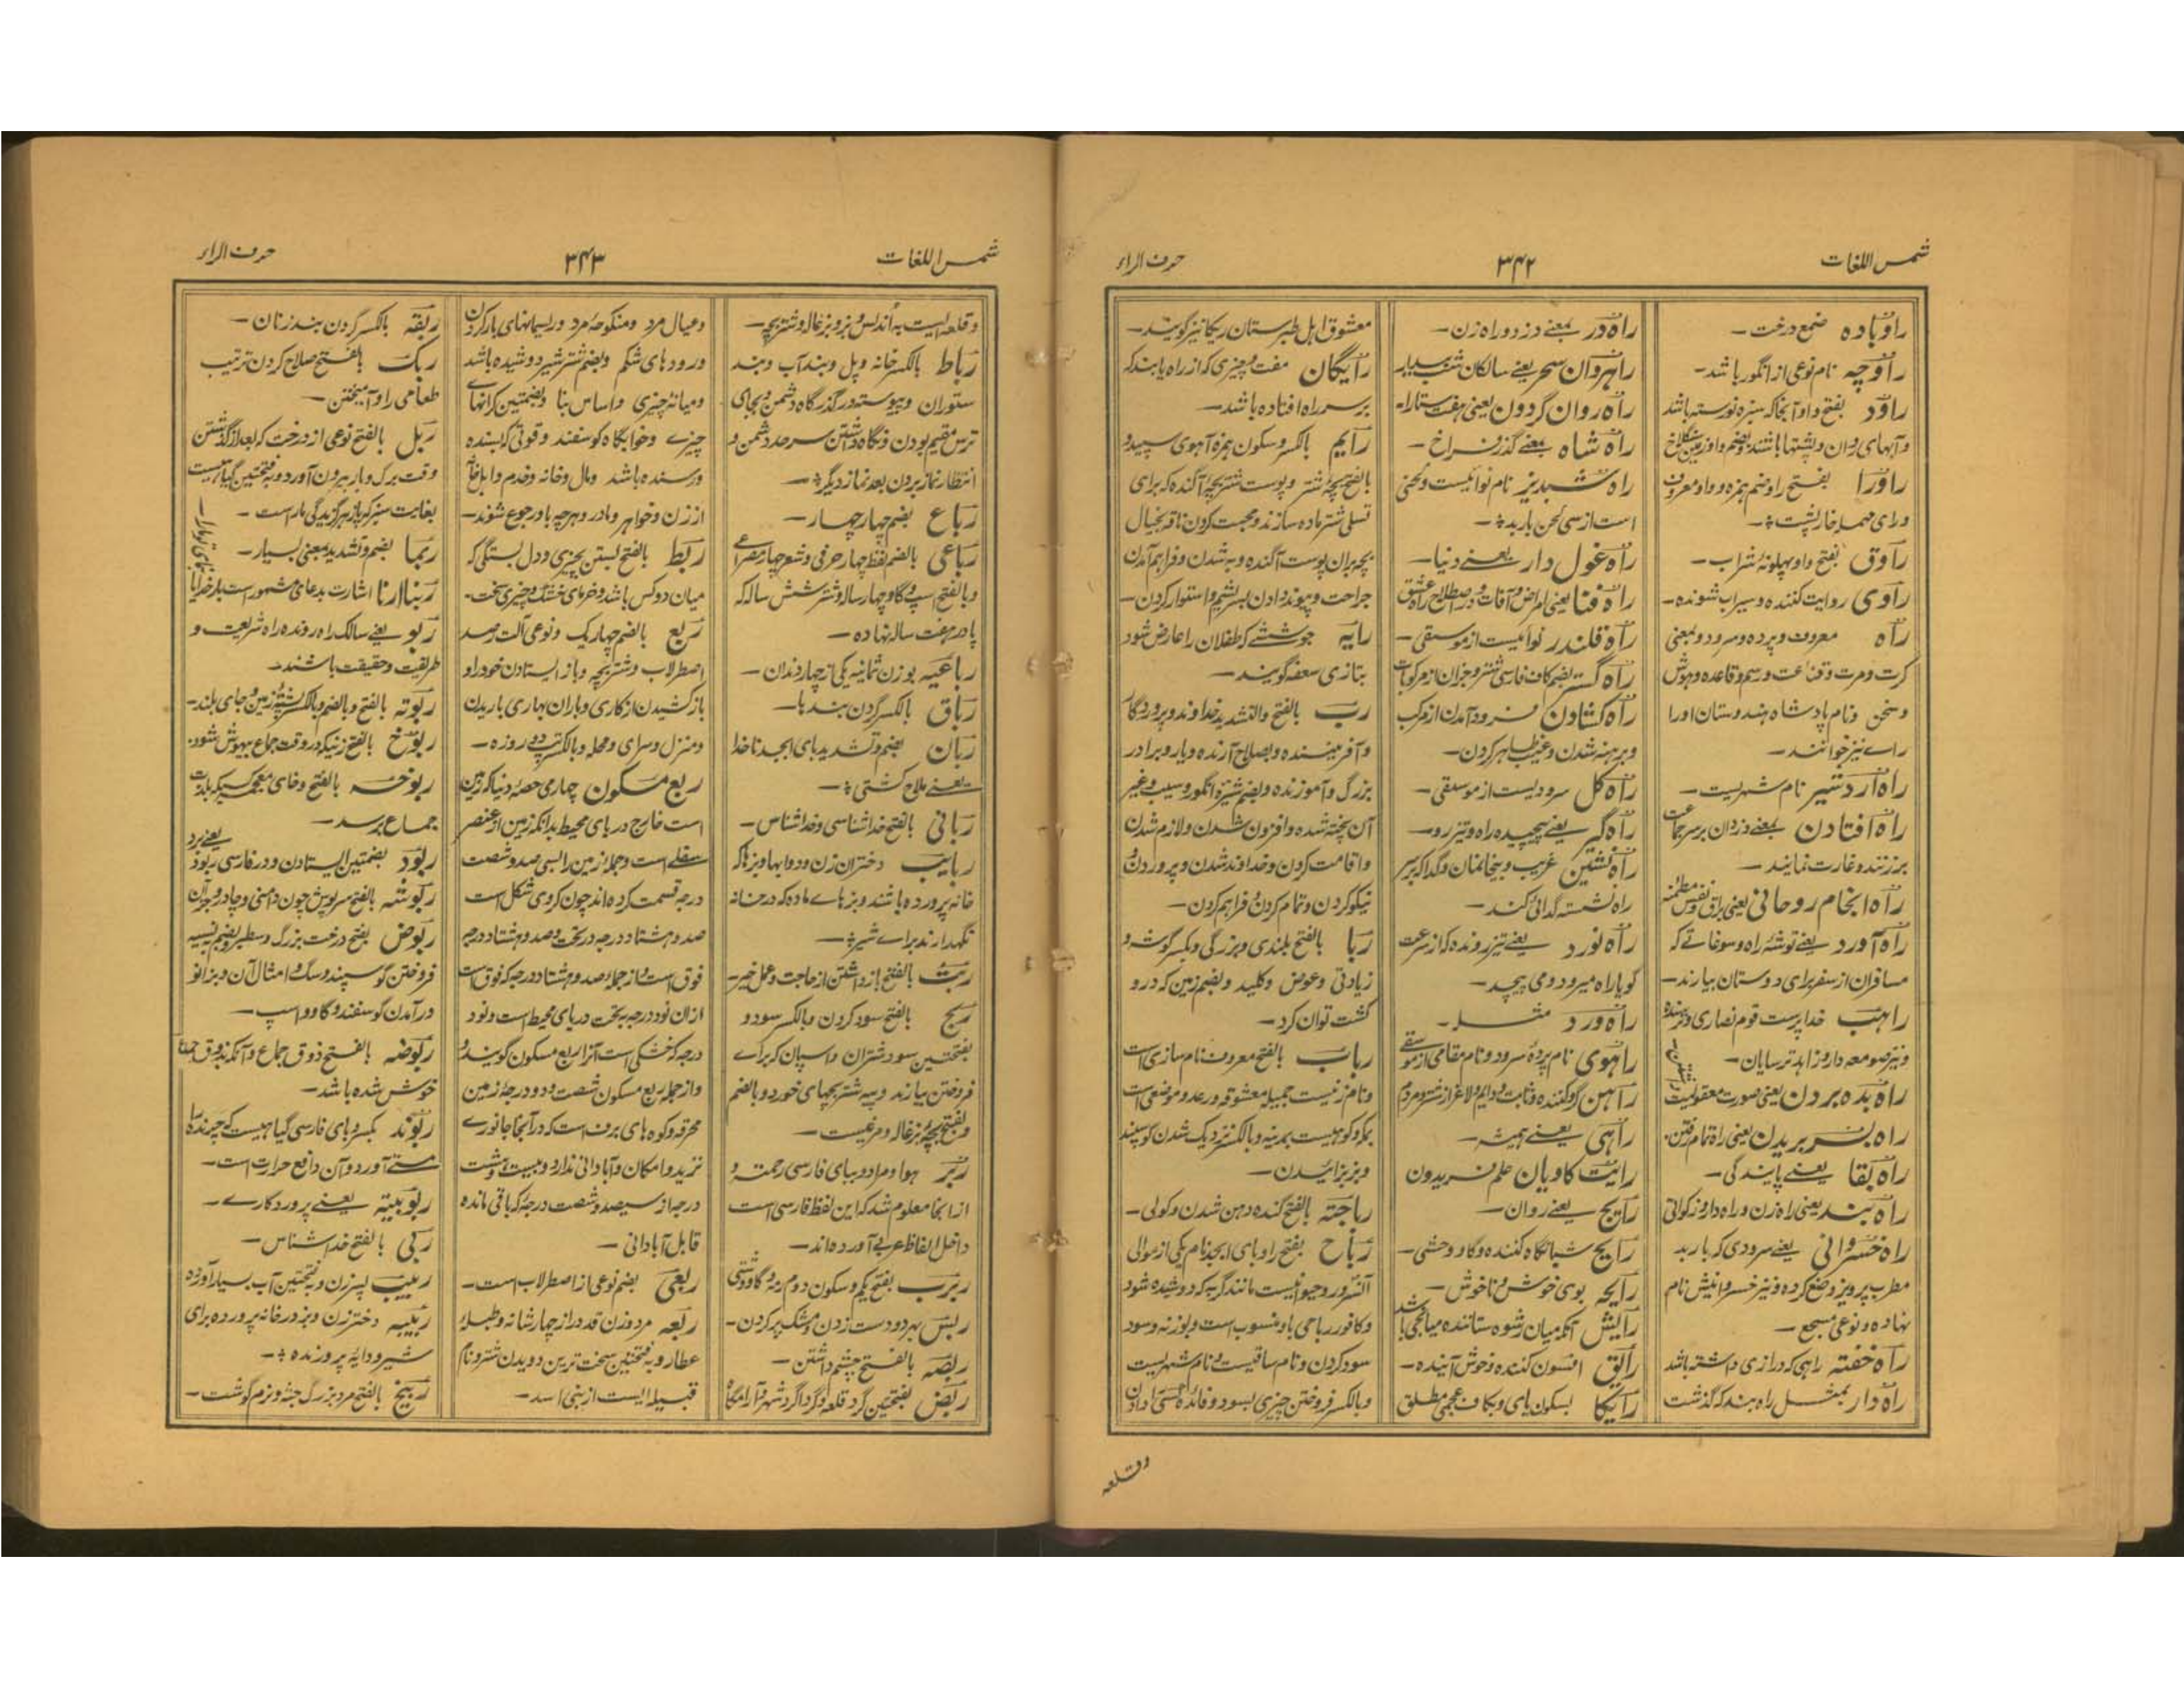 شمس اللغات
۳۴۲
حرف الراء
راوباده صمغ درخت
راوچه نام نوعی از انگور باشد
راود بفتح واو آنجا که سبزه نورسته باشد
راورا بفتح را و ضم همزه و واو معروف
راوق بفتح واو پهلوئه شراب
راوی روایت کننده و سیراب شونده
راه معروف و پرده و سرود و بمعنی
و سخن و نام پادشاه هندوستان او را
راے نیز خوانند
راه اردشیر نام شهریست
راه افتادن بمعنے دزدان بر سر جماعت
بر زنند و غارت نمایند
راه انجام روحانی یعنی براق و نفس مطمئنه
راه آورد یعنے توشهٔ راه و سوغاتے که
مسافران از سفر برای دوستان بیارند
راهب خدا پرست قوم نصاری و ترسنده
و نیز صومعه دار و زاهد ترسایان
راه بسر بریدن یعنی راه تمام رفتن
راه بقا یعنے پایندگی
راه خسروانی یعنے سرودی که باربد
مطرب پرویز وضع کرده و نیز خسروانیش نام
نهاده و نوعی مسجع
راه خفته راهی که درازی داشته باشد
راه دار بمثل راه بند که گذشت
راه در بمعنے دزد و راه زن
راهروان سحر یعنے سالکان شب بیدار
راه روان گردون یعنی هفت ستاره
راه شاه بمعنے گذر فراخ
راه شبدیز نام نوائیست و لحنی
است از سی لحن باربد
راه غول دار یعنے دنیا
راه فنا یعنی امراض و آفات و در اصطلاح راه عشق
راه قلندر نوائیست از موسیقی
راه گشادن فرود آمدن از مرکب
و برهنه شدن و عیب ظاهر کردن
راه گل سرودیست از موسیقی
راه گیر یعنے پیچیده راه و تیز رو
راه نشین غریب و بیخانمان و گدا که بر سر
راه نشسته گدائی کند
راه نورد یعنے تیز رونده که از سرعت
گویا راه میرود و می پیچد
راه ورد مثله
راهوی نام پردهٔ سرود و نام مقامی از موسیقے
راهی یعنے همیشه
رایت کاویان علم فریدون
رایج یعنے روان
رایح شبانگاه کننده و گاو وحشی
رایحه بوی خوش و ناخوش
رایق افسون کننده و خوش آینده
رایکا بسکون یای و بکاف عجمی مطلق
معشوق اهل طبرستان ریکا نیز گویند
رایگان مفت و چیزی که از راه یابند که
بر سر راه افتاده باشد
رایم بالکسر و سکون همزه آهوی سپید و
بالفتح بچهٔ شتر و پوست شتر بچه آگنده که برای
تسلی شتر ماده سازند و محبت کردن ناقه بخیال
بچه بران پوست آگنده و به شدن و فراهم آمدن
جراحت و پیوند دادن بسریشم و استوار کردن
رایه جوششے که طفلان را عارض شود
بتازی سعفه گویند
رب بالفتح والتشدید خداوند و پروردگار
و آفریننده و بصلاح آرنده و یار و برادر
بزرگ و آموزنده و بضم شیرهٔ انگور و سیب و غیر
آن پخته شده و افزون شدن و لازم شدن
و اقامت کردن و خداوند شدن و پروردن و
نیکو کردن و تمام کردن و فراهم کردن
ربا بالفتح بلندی و بزرگی و بکسر گوشه و
زیادتی و عوض و کلید و بضم زمین که درو
کشت توان کرد
رباب بالفتح معروف نام سازی است
و نام زنیست جمیله معشوقه و رعد و موضعی است
و بز بزائیدن
رباجته بالفتح گنده دهن شدن و کولی
رباح بفتح را و بای ابجد نام یکی از موالی
آنسرور و حیوانیست مانند گربه که دوشیده شود
و کافور رباحی باو منسوب است و بوزنه و سود
سود کردن و نام ساقیست و نام شهریست
و بالکسر فروختن چیزی بسود و فائده کسی دادن
وقلعه
شمس اللغات
۳۴۳
حرف الراء
و قلعه ایست به اندلس و بز و بزغاله و شتر بچه
رباط بالکسر خانه و پل و بند آب و بند
ستوران و پیوسته در گذرگاه دشمن و بجای
ترس مقیم بودن و نگاه داشتن سرحد دشمن و
انتظار نماز بردن بعد نماز دیگر
رباع بضم چهار چهار
رباعی بالضم لفظ چهار حرفی و شعر چهار مصراعے
و بالفتح اسپ و گاو چهار ساله و شتر شش ساله که
پا در هفت سال نهاده
رباعیه بوزن ثمانیه یکی از چهار دندان
رباق بالکسر گردن بندها
ربان بضم و تشدید بای ابجد ناخدا
یعنے ملاح کشتی
ربانی بالفتح خدا شناسی و خدا شناس
ربایب دختران زن و دوابها و بزها که
خانه پرورده باشند و بزهاے ماده که در خانه
نگهدارند براے شیر
ربث بالفتح باز داشتن از حاجت و عمل خیر
ربح بالفتح سود کردن و بالکسر سود و
بفتحتین سود شتران و اسپان که براے
فروختن بیارند و پیه شتر بچهای خورد و بالضم
و بفتح بچهٔ بزغاله و مرغیست
ربر هوا و مراد و ببای فارسی رحمت و
از اینجا معلوم شد که این لفظ فارسی است
داخل الفاظ عربی آورده اند
ربرب بفتح یکم و سکون دوم رمهٔ گاو دشتی
ربس بهر دو دست زدن و مشک پر کردن
ربصه بالفتح چشم داشتن
ربض بفتحتین گرد قلعه و گرداگرد شهر و آرامگاه
و عیال مرد و منکوحهٔ مرد و ریسمانهای بار کردن
و رودهای شکم و بضم شتر شیر دوشیده باشد
و میانهٔ چیزی و اساس بنا و بضمتین کرانهاے
چیزے و خوابگاه گوسفند و قوتی که بسنده
و رسنده باشد و مال و خانه و خدم و اہل خانه
از زن و خواهر و مادر و هر چه باو رجوع شوند
ربط بالفتح بستن بچیزی و دل بستگی که
میان دو کس باشد و خرمای خشک و چیزی سخت
ربع بالضم چهار یک و نوعی آلت رصد
اصطرلاب و شتر بچه و باز ایستادن خود را و
باز کشیدن از کاری و باران بهاری باریدن
و منزل و سرای و محله و بالکسر تپ دو روزه
ربع مسکون چهارمی حصهٔ دنیا که زمین
است خارج دریای محیط بدانکه زمین از عنصر
سفلے است و جمله زمین را بسی صد و شصت
درجه قسمت کرده اند چون کروی شکل است
صد و هشتاد درجه در تحت و صد و هشتاد درجه
فوق است و از جمله صد و هشتاد درجه که فوق است
ازان نود درجه به تحت دریای محیط است و نود
درجه که خشکی است آنرا ربع مسکون گویند و
و از جمله ربع مسکون شصت و دو درجهٔ زمین
محرقه و کوه های برف است که در آنجا جانورے
نزید و امکان و آبادانی ندارد و بیست و هشت
درجه از سیصد و شصت درجه که باقی مانده
قابل آبادانی
ربعی بضم نوعی از اصطرلاب است
ربعه مرد و زن قد دراز چهار شانه و طبلهٔ
عطار و به فتحتین سخت ترین دویدن شتر و نام
قبیله ایست از بنی اسد
ربقه بالکسر گردن بند زنان
ربک بالفتح صلاح کردن ترتیب
طعامی را و آمیختن
ربل بالفتح نوعی از درخت که بعد از گذشتن
وقت برگ و بار بیرون آورد و به فتحتین گیاهیست
بغایت سبز که پازهر گزیدگی مار است
ربما بضم و تشدید بمعنی بسیار
ربنا ارنا اشارت بدعای مشهور است بار خدایا
ربو یعنے سالک راه رونده راه شریعت و
طریقت و حقیقت باشند
ربوته بالفتح و بالضم و بالکسر پشتهٔ زمین و جای بلند
ربوخ بالفتح زنیکه در وقت جماع بیهوش شود
ربوخه بالفتح و خای معجمه
جماع برسد
ربود بضمتین ایستادن و در فارسی ربود
ربوشه بالفتح سرپوش چون دامنی و چادر و جز آن
ربوض بفتح درخت بزرگ و سطبر و بضم به سینه
فروختن گوسپند و سگ و امثال آن و بزانو
در آمدن گوسفند و گاو و اسپ
ربوضه بالفتح ذوق جماع و آنکه بذوق جماع
خوش شده باشد
ربوند بکسر و بای فارسی گیاهیست که چرنده را
مستے آورد و آن دافع حرارت است
ربوبیته یعنے پروردگارے
ربی بالفتح خدا شناس
ربیب پسر زن و به فتحتین آب بسیار آورده
ربیبه دختر زن و بز در خانه پرورده برای
شیر و دایهٔ پرورنده
ربیخ بالفتح مرد بزرگ جثه و نرم گوشت